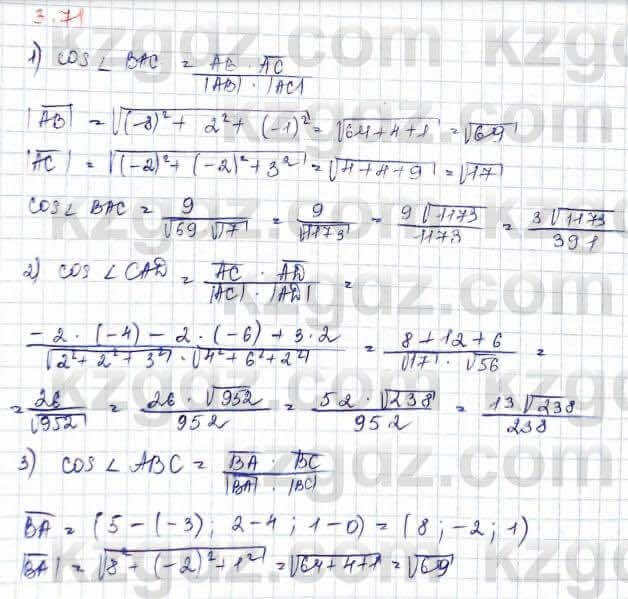 3.71
1) cos∠BAC = (AB · AC) / (|AB| · |AC|)
|AB| = √((-8)² + 2² + (-1)²) = √(64+4+1) = √69
|AC| = √((-2)² + (-2)² + 3²) = √(4+4+9) = √17
cos∠BAC = 9 / (√69 √17) = 9 / √1173 = 9√1173 / 1173 = 3√1173 / 391
2) cos∠CAD = (AC · AD) / (|AC| · |AD|) =
(-2·(-4) - 2·(-6) + 3·2) / (√(2²+2²+3²) · √(4²+6²+2²)) = (8+12+6) / (√17 · √56) =
= 26 / √952 = 26·√952 / 952 = 52·√238 / 952 = 13√238 / 238
3) cos∠ABC = (BA · BC) / (|BA| · |BC|)
BA = (5-(-3); 2-4; 1-0) = (8; -2; 1)
|BA| = √(8² + (-2)² + 1²) = √(64+4+1) = √69
kzgdz.com